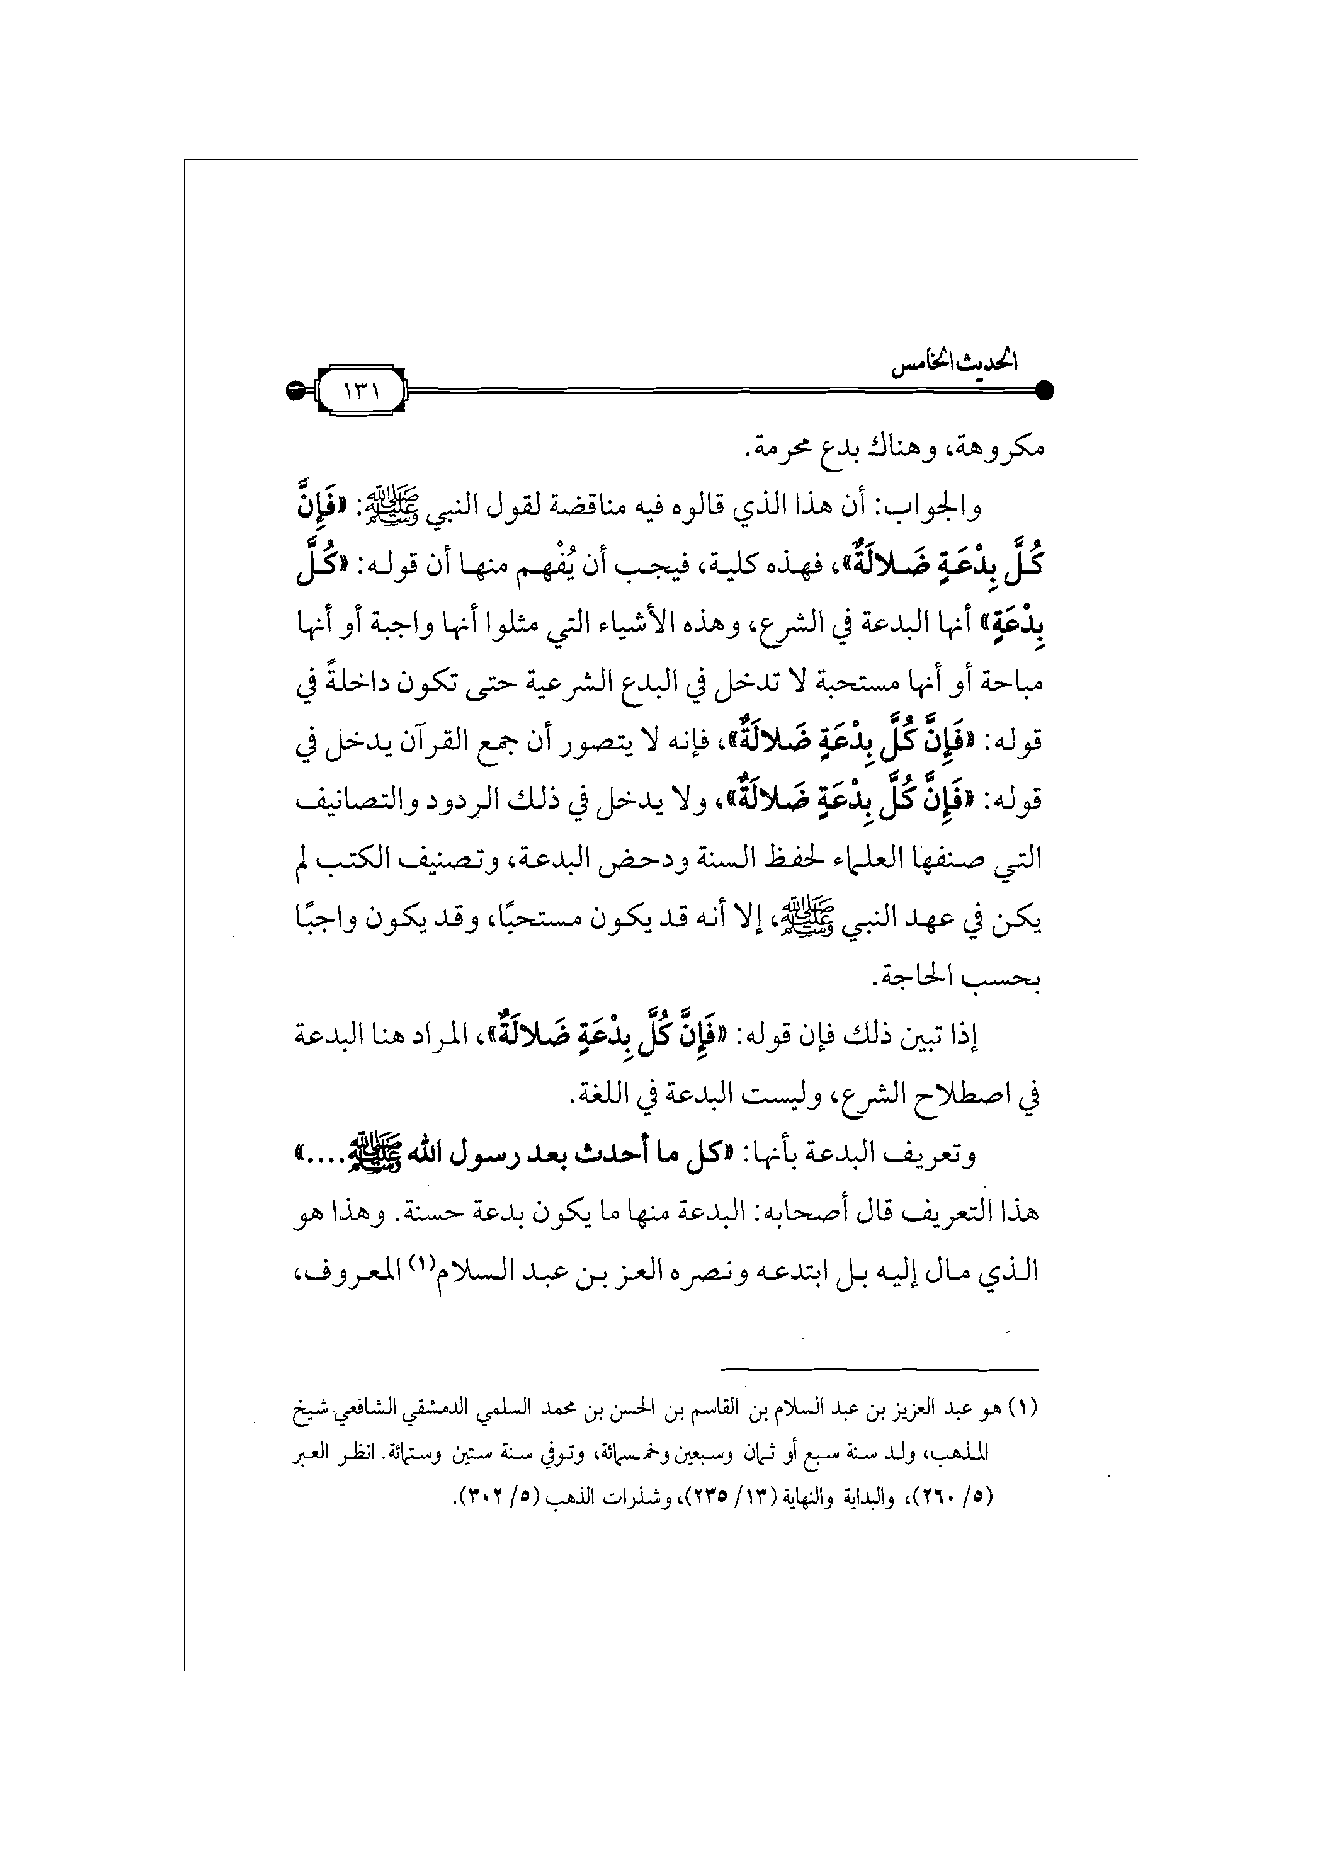 الحديث الخامس
١٣١
مكروهة، وهناك بدع محرمة.
والجواب: أن هذا الذي قالوه فيه مناقضة لقول النبي ﷺ: «فَإِنَّ
كُلَّ بِدْعَةٍ ضَلالَةٌ»، فهذه كلية، فيجب أن يُفْهم منها أن قوله: «كُلَّ
بِدْعَةٍ» أنها البدعة في الشرع، وهذه الأشياء التي مثلوا أنها واجبة أو أنها
مباحة أو أنها مستحبة لا تدخل في البدع الشرعية حتى تكون داخلةً في
قوله: «فَإِنَّ كُلَّ بِدْعَةٍ ضَلالَةٌ»، فإنه لا يتصور أن جمع القرآن يدخل في
قوله: «فَإِنَّ كُلَّ بِدْعَةٍ ضَلالَةٌ»، ولا يدخل في ذلك الردود والتصانيف
التي صنفها العلماء لحفظ السنة ودحض البدعة، وتصنيف الكتب لم
يكن في عهد النبي ﷺ، إلا أنه قد يكون مستحبًا، وقد يكون واجبًا
بحسب الحاجة.
إذا تبين ذلك فإن قوله: «فَإِنَّ كُلَّ بِدْعَةٍ ضَلالَةٌ»، المراد هنا البدعة
في اصطلاح الشرع، وليست البدعة في اللغة.
وتعريف البدعة بأنها: «كل ما أحدث بعد رسول الله ﷺ....»
هذا التعريف قال أصحابه: البدعة منها ما يكون بدعة حسنة. وهذا هو
الذي مال إليه بل ابتدعه ونصره العز بن عبد السلام(١) المعروف،
(١) هو عبد العزيز بن عبد السلام بن القاسم بن الحسن بن محمد السلمي الدمشقي الشافعي شيخ
المذهب، ولد سنة سبع أو ثمان وسبعين وخمسمائة، وتوفي سنة ستين وستمائة. انظر العبر
(٥/ ٢٦٠)، والبداية والنهاية (١٣/ ٢٣٥)، وشذرات الذهب (٥/ ٣٠٢).